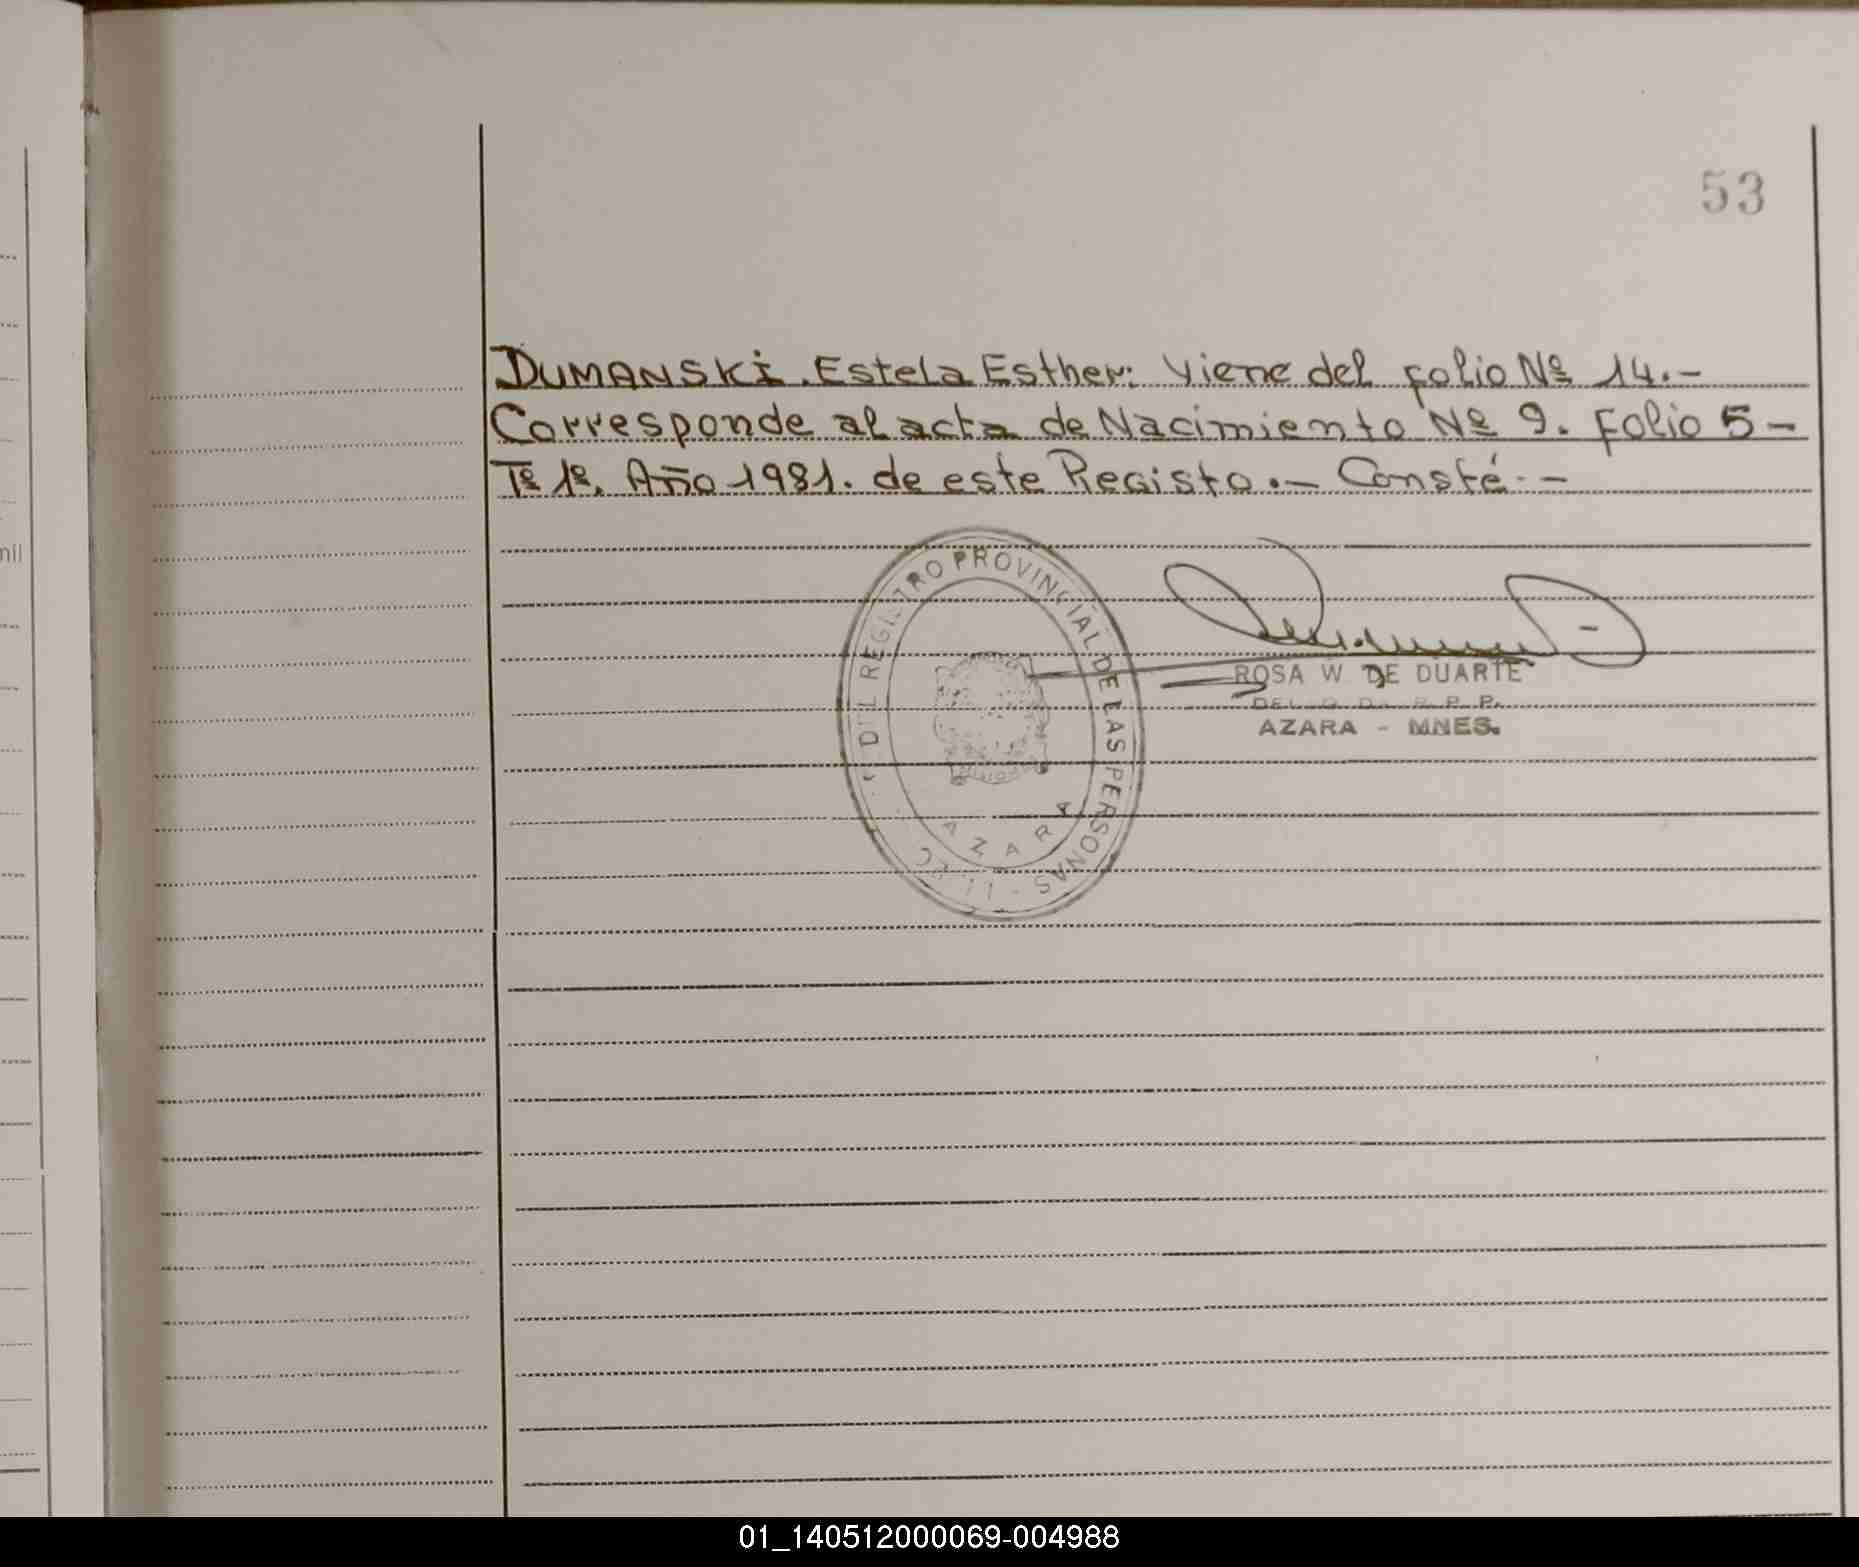 53
DUMANSKI. Estela Esther: Viene del folio Nº 14.-
Corresponde al acta de Nacimiento Nº 9. Folio 5-
Tº 1º. Año 1981. de este Registo.- Consté.-
REGISTRO PROVINCIAL DE LAS PERSONAS
AZARA
ROSA W. DE DUARTE
AZARA - MNES.
mil
01_140512000069-004988